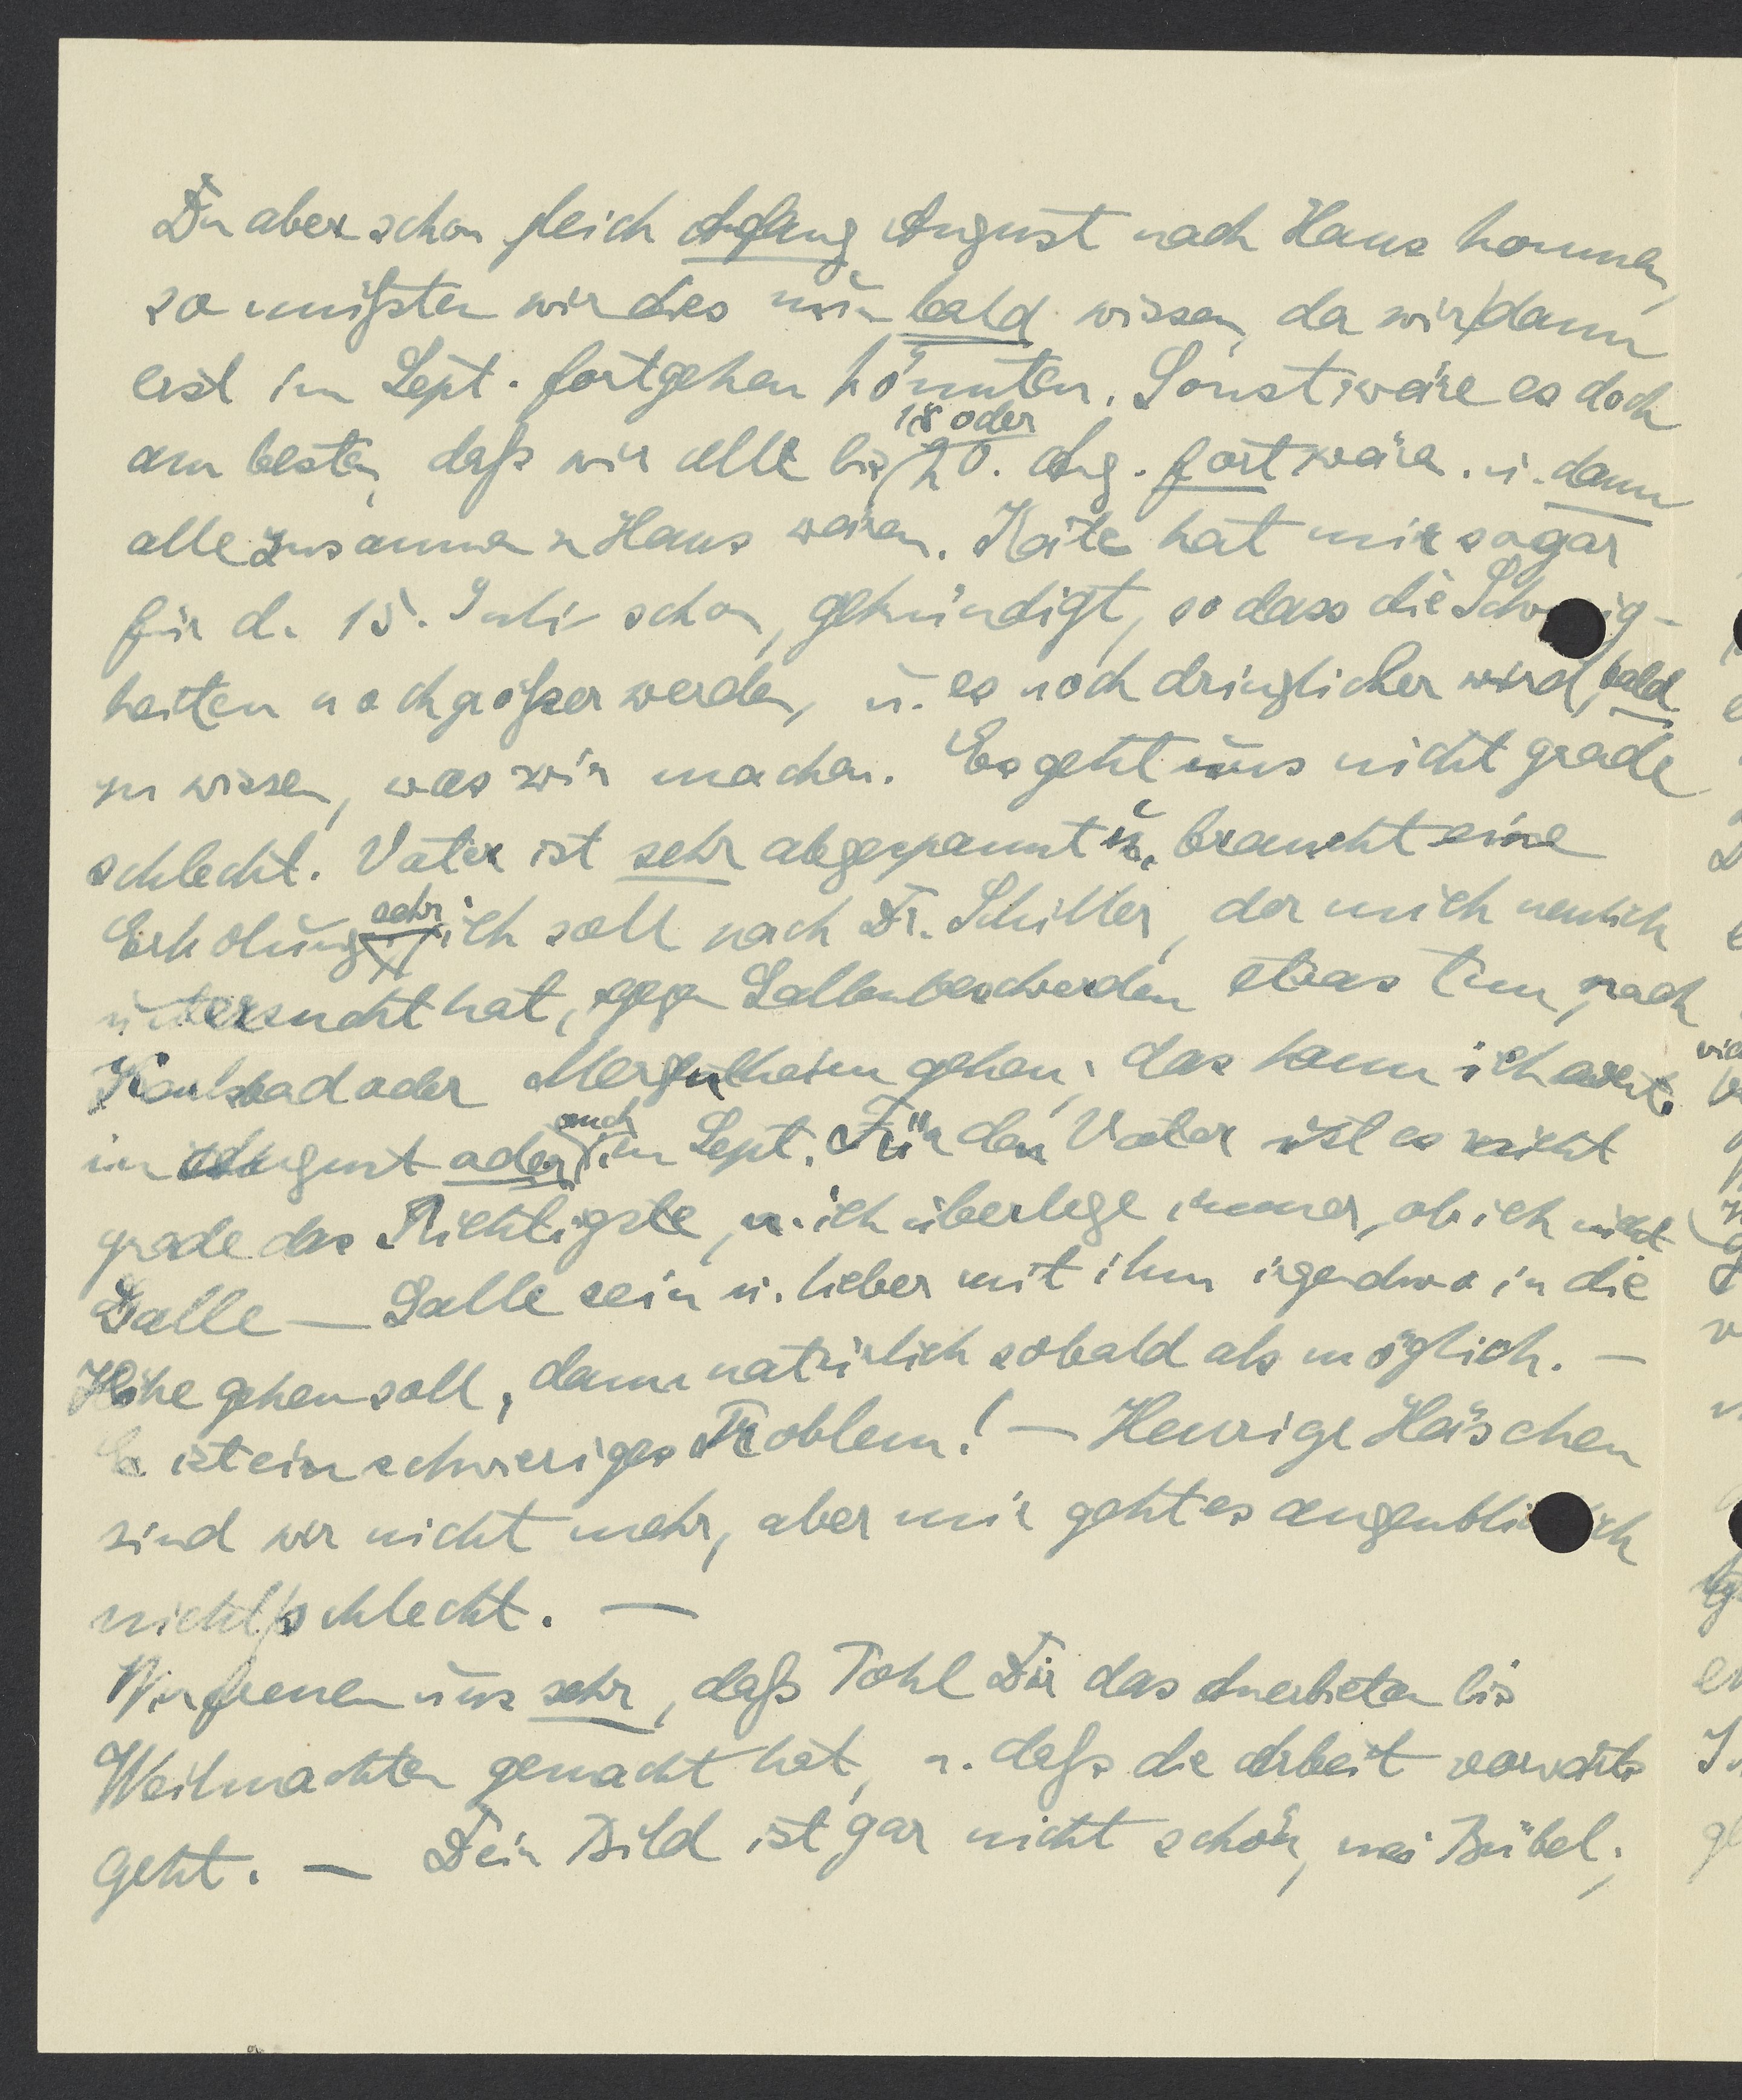 Du aber schon gleich Anfang August nach Haus kommen,
so müßten wir dies nun bald wissen, da wir dann
erst im Sept. fortgehen könnten. Sonst wäre es doch
18 oder
am besten, daß wir alle bis 20. Aug. fort wären. u. dann
alle zusammen zu Haus wären. Käte hat mir sogar
für d. 15. Juli schon gekündigt, so dass die Schwierig-
keiten noch größer werden, u. es noch dringlicher wird, bald
zu wissen, was wir machen. Es geht uns nicht grade
schlecht. Vater ist sehr abgespannt u. braucht eine
Erholung sehr; ich soll nach Dr. Schiller, der mich neulich
untersucht hat, gegen Gallenbeschwerden etwas tun, nach
Karlsbad oder Mergentheim gehen, das kann ich event.
im August oder auch im Sept. Für den Vater ist es nicht
grade das Richtigste, u. ich überlege immer, ob ich nicht
Galle — Galle sein u. lieber mit ihm irgendwo in die
Höhe gehen soll, dann natürlich sobald als möglich. —
Es ist ein schwieriges Problem! — Heurige Häschen
sind wir nicht mehr, aber mir geht es augenblicklich
nicht schlecht. —
Wir freuen uns sehr, daß Pohl Dir das Anerbieten bis
Weihnachten gemacht hat, u. daß die Arbeit vorwärts
geht. — Dein Bild ist gar nicht schön, mei Bübel;